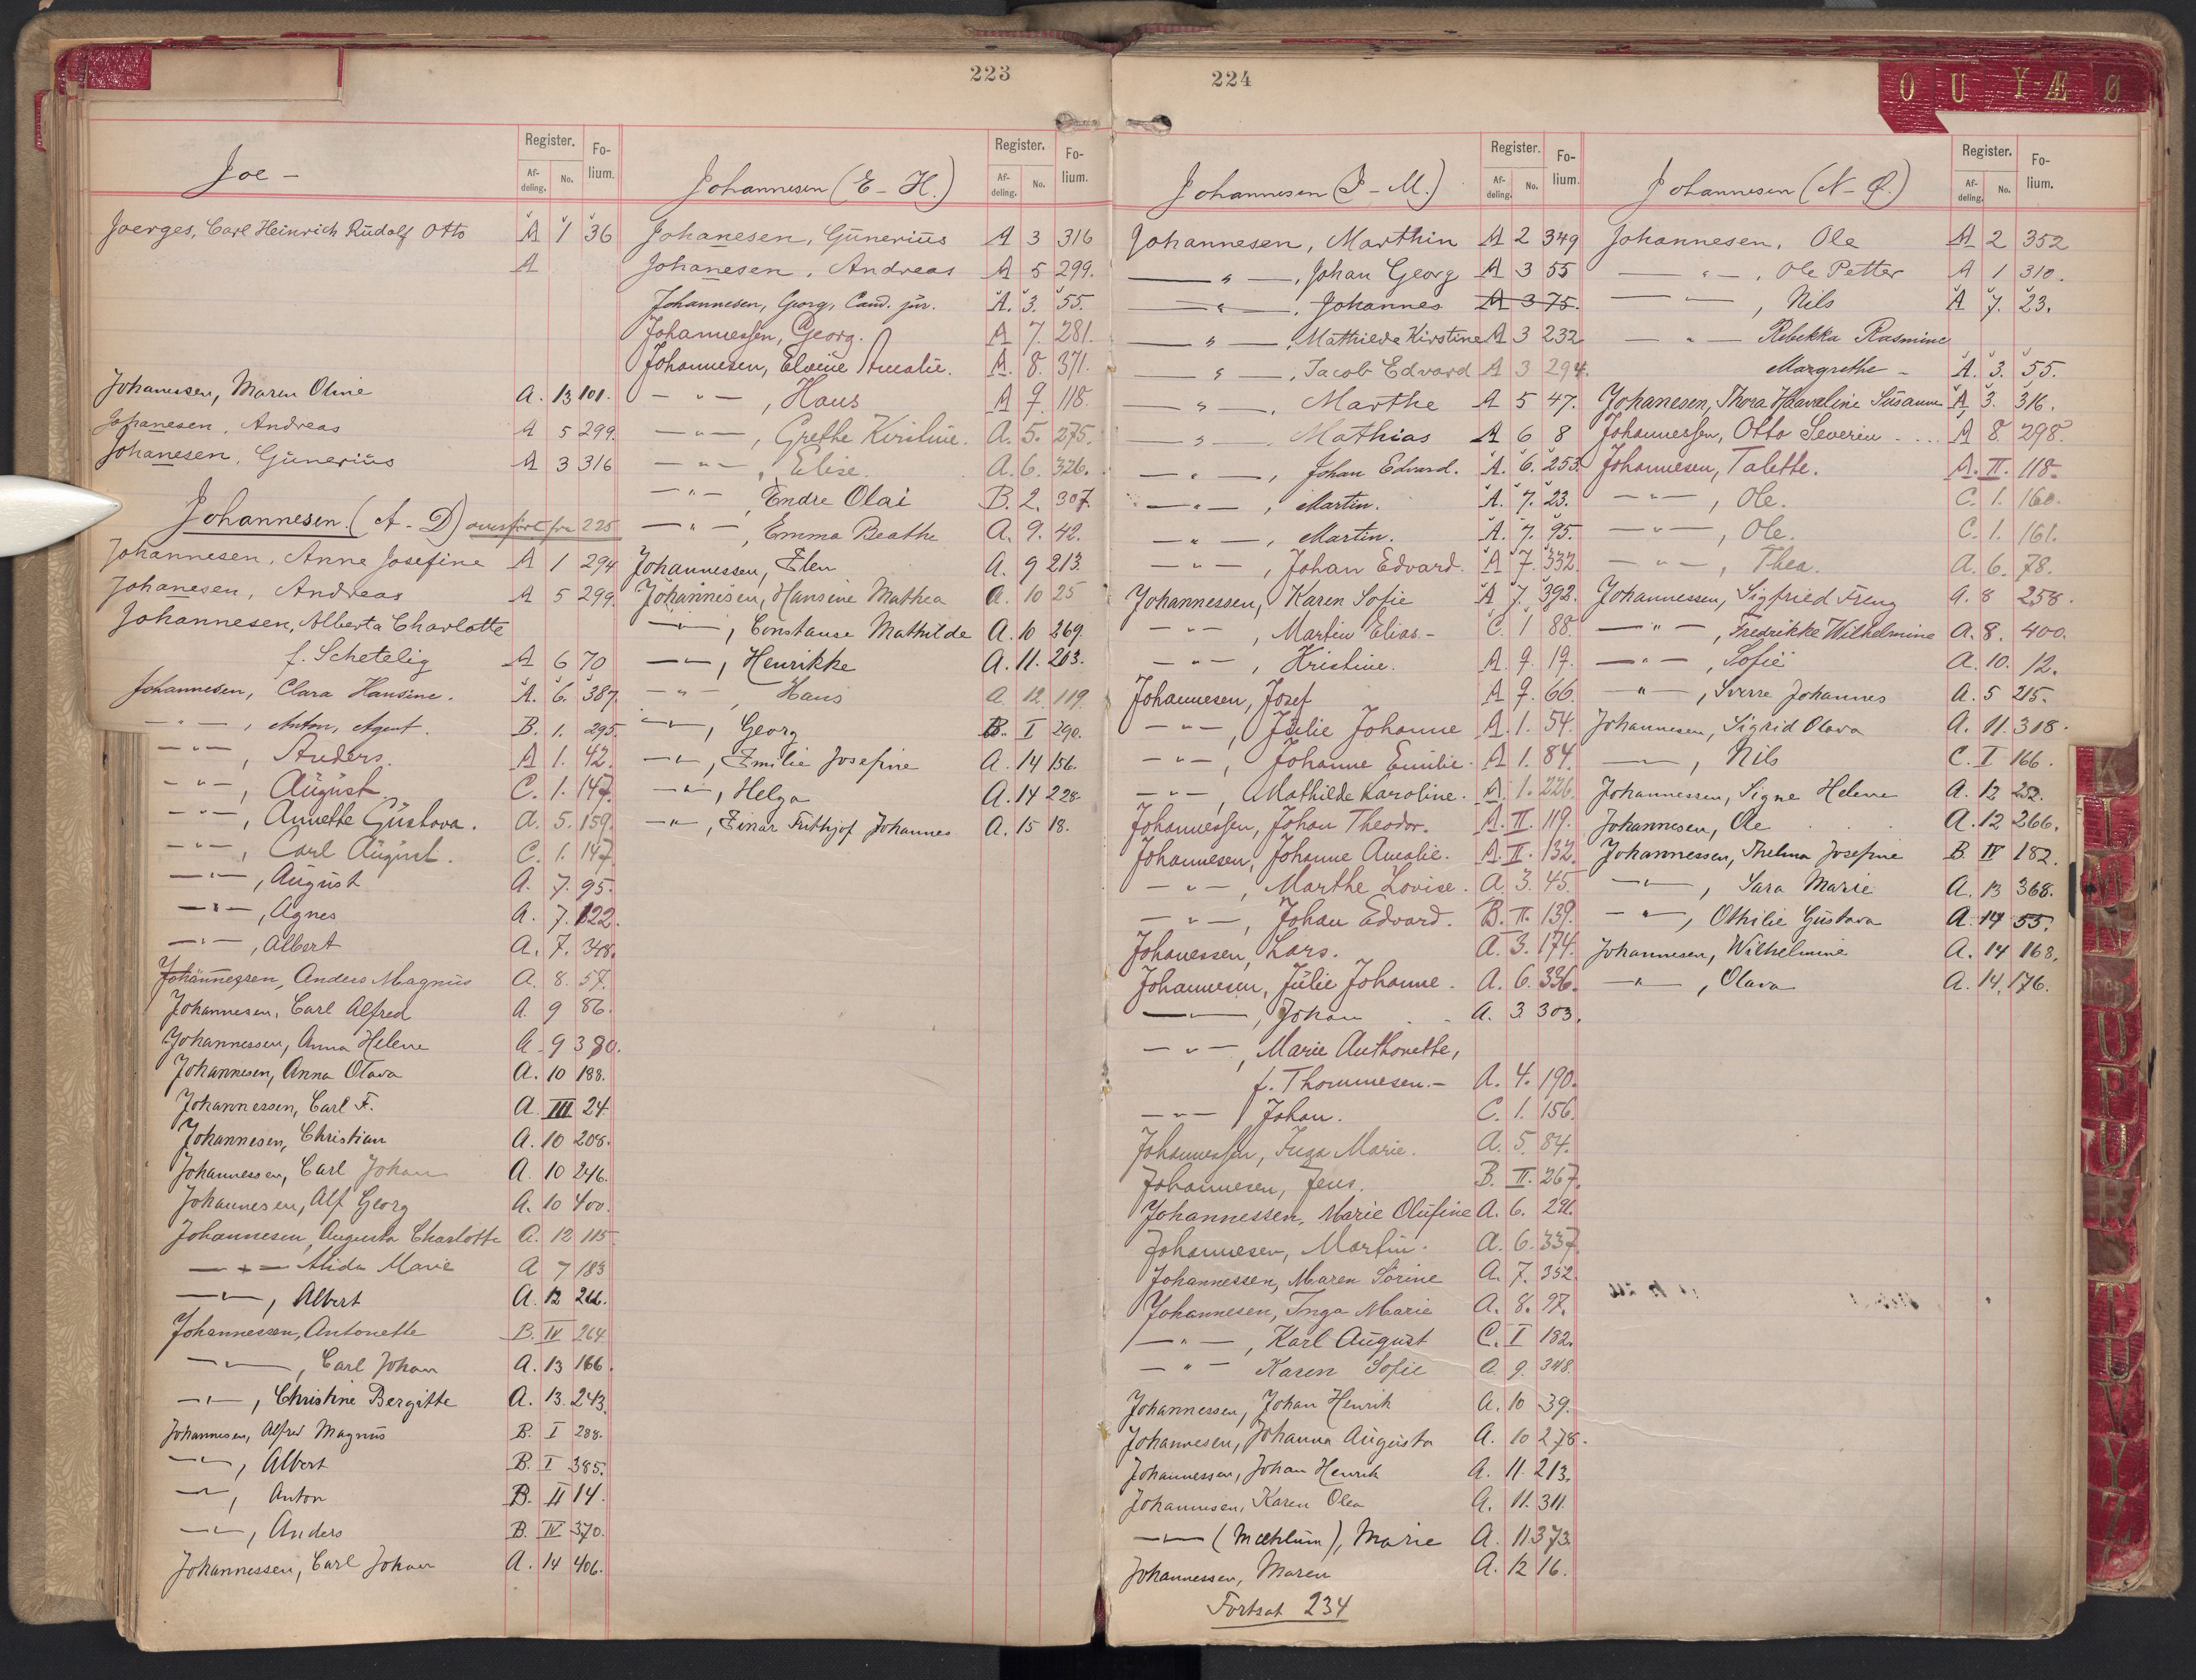 223
Register.
Fo-
lium.
Af-
deling.
No.
Joe -
Joerges, Carl Heinrich Rudolf Otto A 1 36
A
Johanessen, Maren Oline A. 13 101.
Johanesen, Andreas A 5 299.
Johanesen, Gunerius A 3 316
Johannesen. (A - D) overført fra 225
Johannesen, Anne Josefine A 1 294
Johanesen, Andreas A 5 299.
Johannesen, Alberta Charlotte
f. Schetelig A 6 70
Johannesen, Clara Hansine. A. 6. 387.
— " —, Anton, Agent. B. 1. 295.
— " —, Anders. A 1. 42.
— " —, August C. 1. 147.
— " —, Annette Gustava. A. 5. 159.
— " —, Carl August. C. 1. 147.
— " —, August A. 7. 95.
— " —, Agnes A. 7. 122.
— " —, Albert A. 7. 348.
Johannessen, Anders Magnus A. 8. 57.
Johannesen, Carl Alfred A. 9 86.
Johannessen, Anna Helene A. 9 380.
Johannesen, Anna Olava A. 10 188.
Johannessen, Carl F. A. III 24.
Johannesen, Christian A. 10 208.
Johannessen, Carl Johan A. 10 246.
Johannesen, Alf Georg A. 10 400.
Johannesen, Augusta Charlotte A. 12 115.
— " — Alida Marie A 7 183
— " —, Albert A. 12 266.
Johannessen, Antonette B. IV 264
— " —, Carl Johan A. 13 166.
— " —, Christine Bergitte A. 13. 243.
Johannesen, Alfred Magnus B. I 288.
— " —, Albert B. I 385.
— " —, Anton B. II 14.
— " —, Anders B. IV 370.
Johannessen, Carl Johan A. 14 406.
Register.
Fo-
lium.
Af-
deling.
No.
Johannesen (E - H.)
Johanesen, Gunerius A 3 316
Johanesen, Andreas A 5 299.
Johannesen, Georg, Cand. jur. A. 3. 55.
Johannessen, Georg. A 7. 281.
Johannesen, Elvine Amalie. A. 8. 371.
— " —, Hans A 9. 118.
— " —, Grethe Kirstine. A. 5. 275.
— " —, Elise. A. 6. 326.
— " —, Endre Olai B. 2. 307
— " —, Emma Beathe A. 9. 42.
Johannessen, Elen A. 9 213.
Johannesen, Hansine Mathea A. 10 25
— " —, Constanse Mathilde A. 10 269.
— " —, Henrikke A. 11. 203.
— " — Hans A 12 119.
— " —, Georg B. I 290.
— " —, Emilie Josefine A. 14 156.
— " —, Helga A. 14 228.
— " —, Einar Frithjof Johannes A. 15 18.
224
Register.
Fo-
lium.
Af-
deling.
No.
Johannesen (I - M.)
Johannesen, Marthin A 2 349
— " —, Johan Georg A 3 55
— " —, Johannes A 3 75.
— " —, Mathilde Kirstine A 3 232
— " —, Jacob Edvard A 3 294.
— " —, Marthe A 5 47.
— " — Mathias A 6 8
— " —, Johan Edvard. A. 6. 253.
— " —, Martin. A. 7. 23.
— " —, Martin. A. 7. 95.
— " —, Johan Edvard. A 7. 332.
Johannessen, Karen Sofie A 7. 392.
— " —, Martin Elias. - C. 1 88.
— " —, Kristine. A. 9. 19.
Johannesen, Josef A 9. 66.
— " —, Julie Johanne A. 1. 54.
— " —, Johanne Emilie. A 1. 84.
— " —, Mathilde Karoline. A. 1. 226.
Johannessen, Johan Theodor. A. II. 119.
Johannesen, Johanne Amalie. A. II. 132.
— " —, Marthe Lovise. A. 3. 45.
— " —, Johan Edvard. B. II. 139.
Johanessen, Lars. A. 3. 174.
Johannesen, Julie Johanne. A. 6. 336.
— " —, Johan A. 3. 303.
— " —, Marie Anthonette,
f. Thommesen. - A. 4. 190.
— " — Johan. C. 1. 156.
Johannessen, Inga Marie. A. 5. 84.
Johannesen, Jens. B. II. 267.
Johannessen, Marie Olufine A. 6. 291.
Johannesen, Martin. A. 6. 337.
Johannessen, Maren Sorine A. 7. 352.
Johannesen, Inga Marie A. 8. 97.
— " —, Karl August C. I 132.
— " — Karen Sofie A 9. 348.
Johannessen, Johan Henrik A. 10 39.
Johannesen, Johanna Augusta A. 10 278.
Johannessen, Johan Henrik A. 11. 213.
Johannesen, Karen Olea A. 11. 311.
— " — (Mæhlum), Marie A. 11 373.
Johannessen, Maren A. 12 16.
Fortsat 234
Register.
Fo-
lium.
Af-
deling.
No.
Johannesen (N - Ø.)
Johannesen, Ole A 2 352
— " —, Ole Petter A 1 310.
— " —, Nils A 7. 23.
— " — Rebekka Rasmine
Margrethe - A. 3. 55.
Johanesen, Thora Haavaline Susanne A 3. 316.
Johannessen, Otto Severin . . . A 8. 298.
Johannesen, Talette. A. II. 118.
— " —, Ole. C. 1. 160.
— " —, Ole. C. 1. 161.
— " —, Thea. A. 6. 78.
Johannessen, Sigfried Freng A. 8 258.
— " —, Fredrikke Wilhelmine A. 8. 400.
— " —, Sofie A. 10. 12.
— " —, Sverre Johannes A. 5 215.
Johannesen, Sigrid Olava A. 11. 318.
— " —, Nils C. I 166.
Johannessen, Signe Helene A. 12 252.
Johannesen, Ole A. 12 266.
Johannessen, Thelma Josefine B. IV 182.
— " —, Sara Marie A. 13 368.
— " —, Othilie Gustava A. 14 55.
Johannesen, Wilhelmine A. 14 168.
— " —, Olava A. 14. 176.
O U Y Æ Ø
K
L
M
N
U
P
U
R
T
U
V
Y
Z